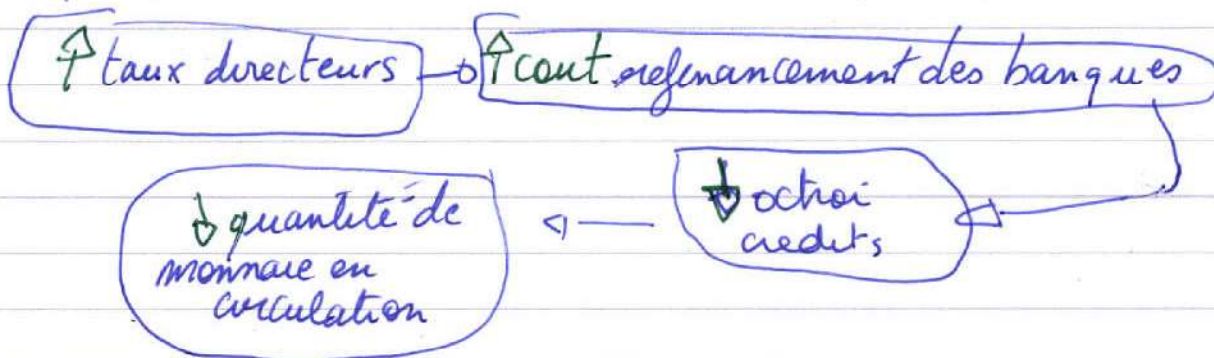 ↑ taux directeurs → ↑ cout refinancement des banques
↓ octroi
credits
↓ quantité de
monnaie en
circulation